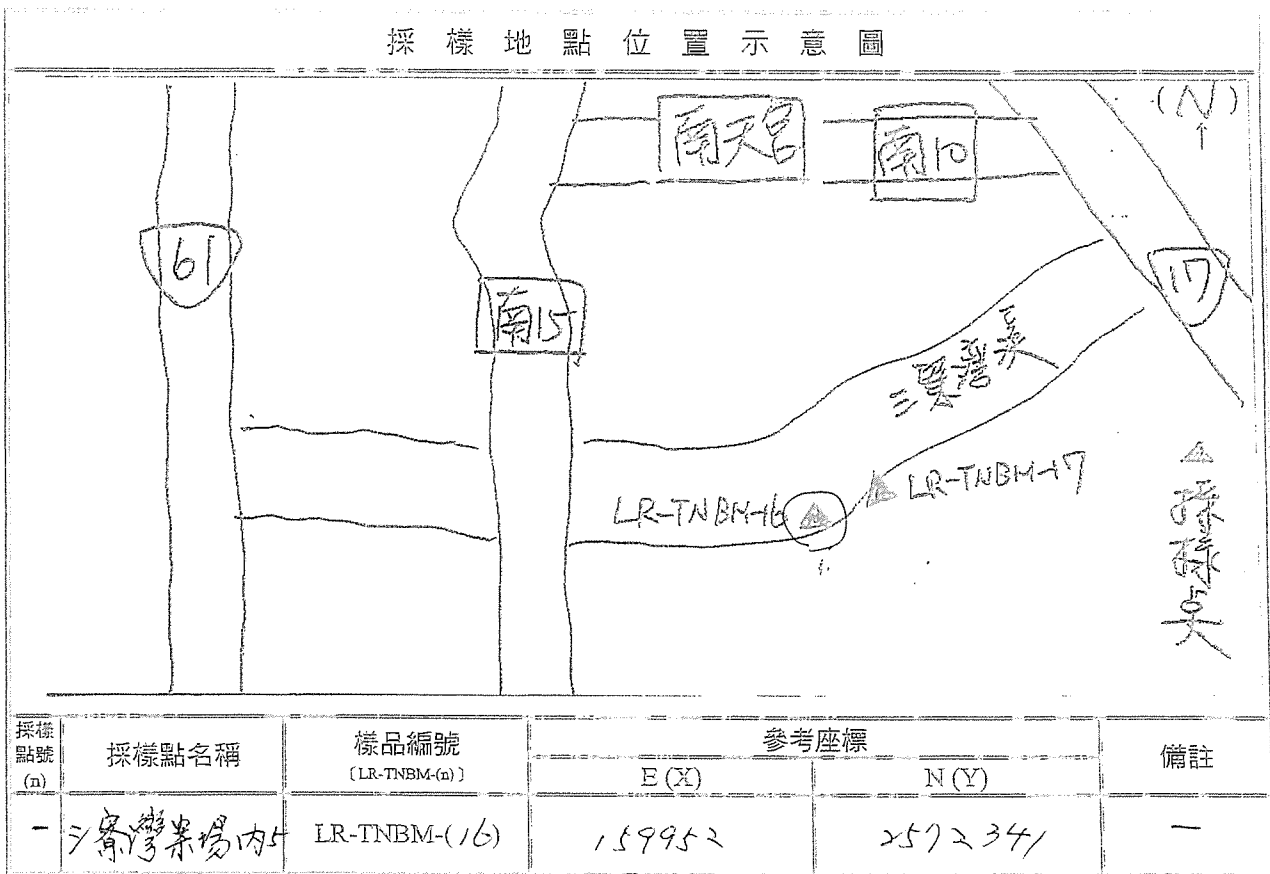 採樣地點位置示意圖
(N)
↑
南天宮
南10
61
17
南15
三寮灣溪
LR-TNBM-16
LR-TNBM-17
採樣點
採樣點號(n) 採樣點名稱 樣品編號〔LR-TNBM-(n)〕 參考座標 備註
E (X) N (Y)
— 三寮灣業場內5 LR-TNBM-(16) 159952 2572341 —